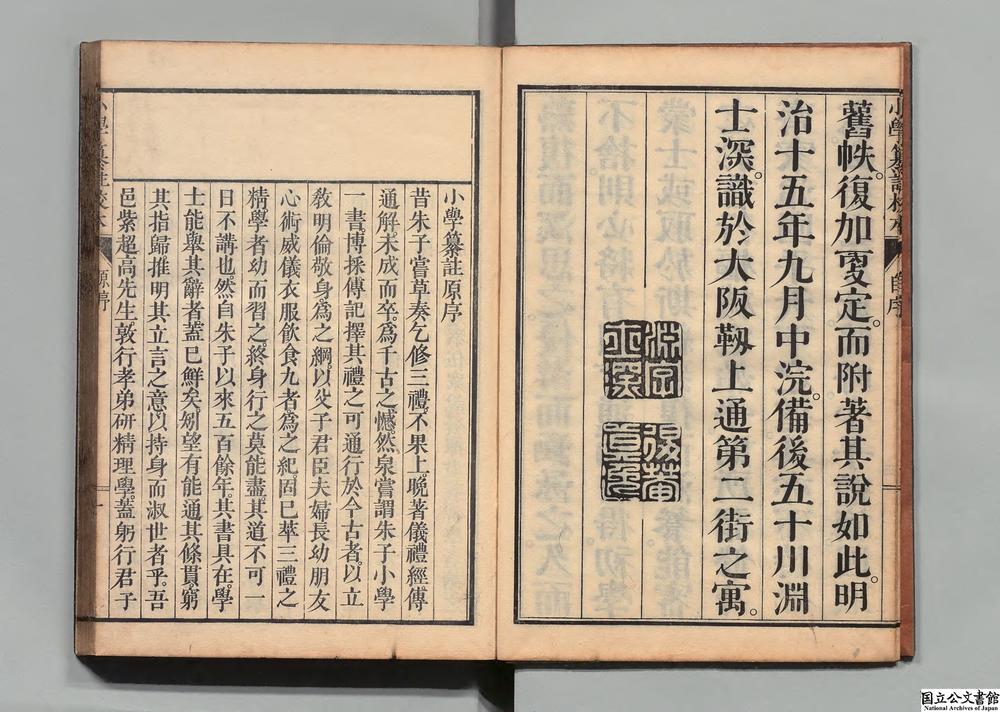 舊帙。復加覂定。而附著其說如此。明
治十五年九月中浣。備後五十川淵
士深識於大阪靱上通第二街之寓。
小學纂註原序
昔朱子嘗草奏乞修三禮。不果上。晚著儀禮經傳
通解。未成而卒。爲千古之憾。然泉嘗謂朱子小學
一書。博採傳記擇其禮之可通行於今古者。以立
敎明倫敬身爲之綱。以父子君臣夫婦長幼朋友
心術威儀衣服飲食九者爲之紀。固已萃三禮之
精。學者幼而習之。終身行之。莫能盡其道。不可一
日不講也。然自朱子以來五百餘年。其書具在。學
士能舉其辭者蓋已鮮矣。矧望有能通其條貫。窮
其指歸。推明其立言之意。以持身而淑世者乎。吾
邑紫超高先生。敦行孝弟。研精理學。蓋躬行君子
小學纂註校本
原序
国立公文書館
National Archives of Japan